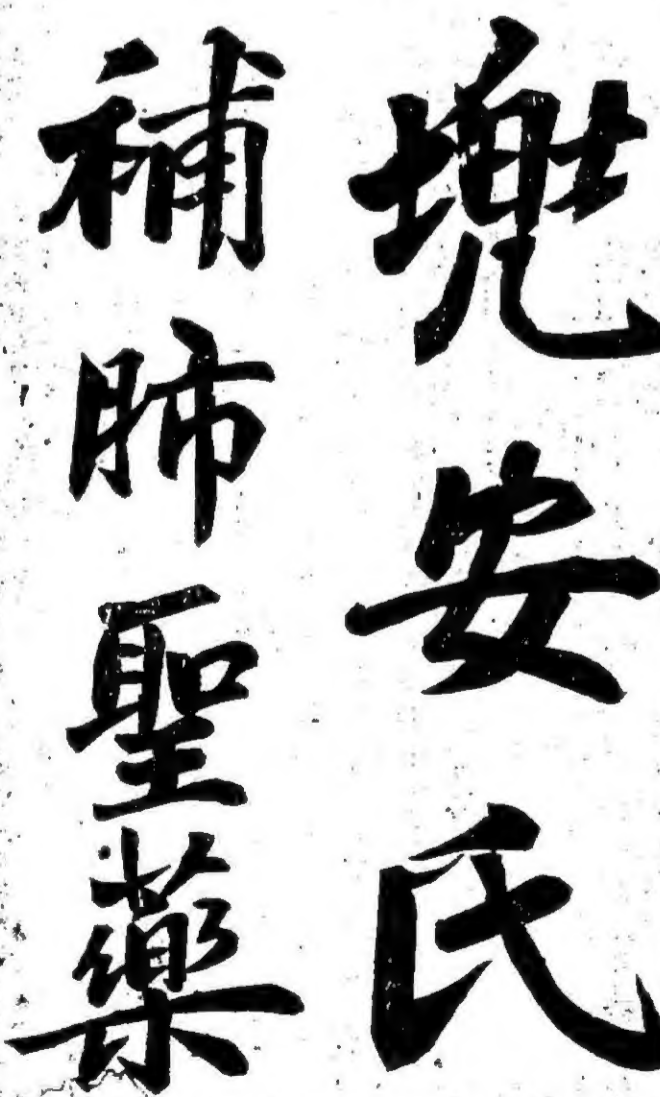 兜安氏
補肺聖藥